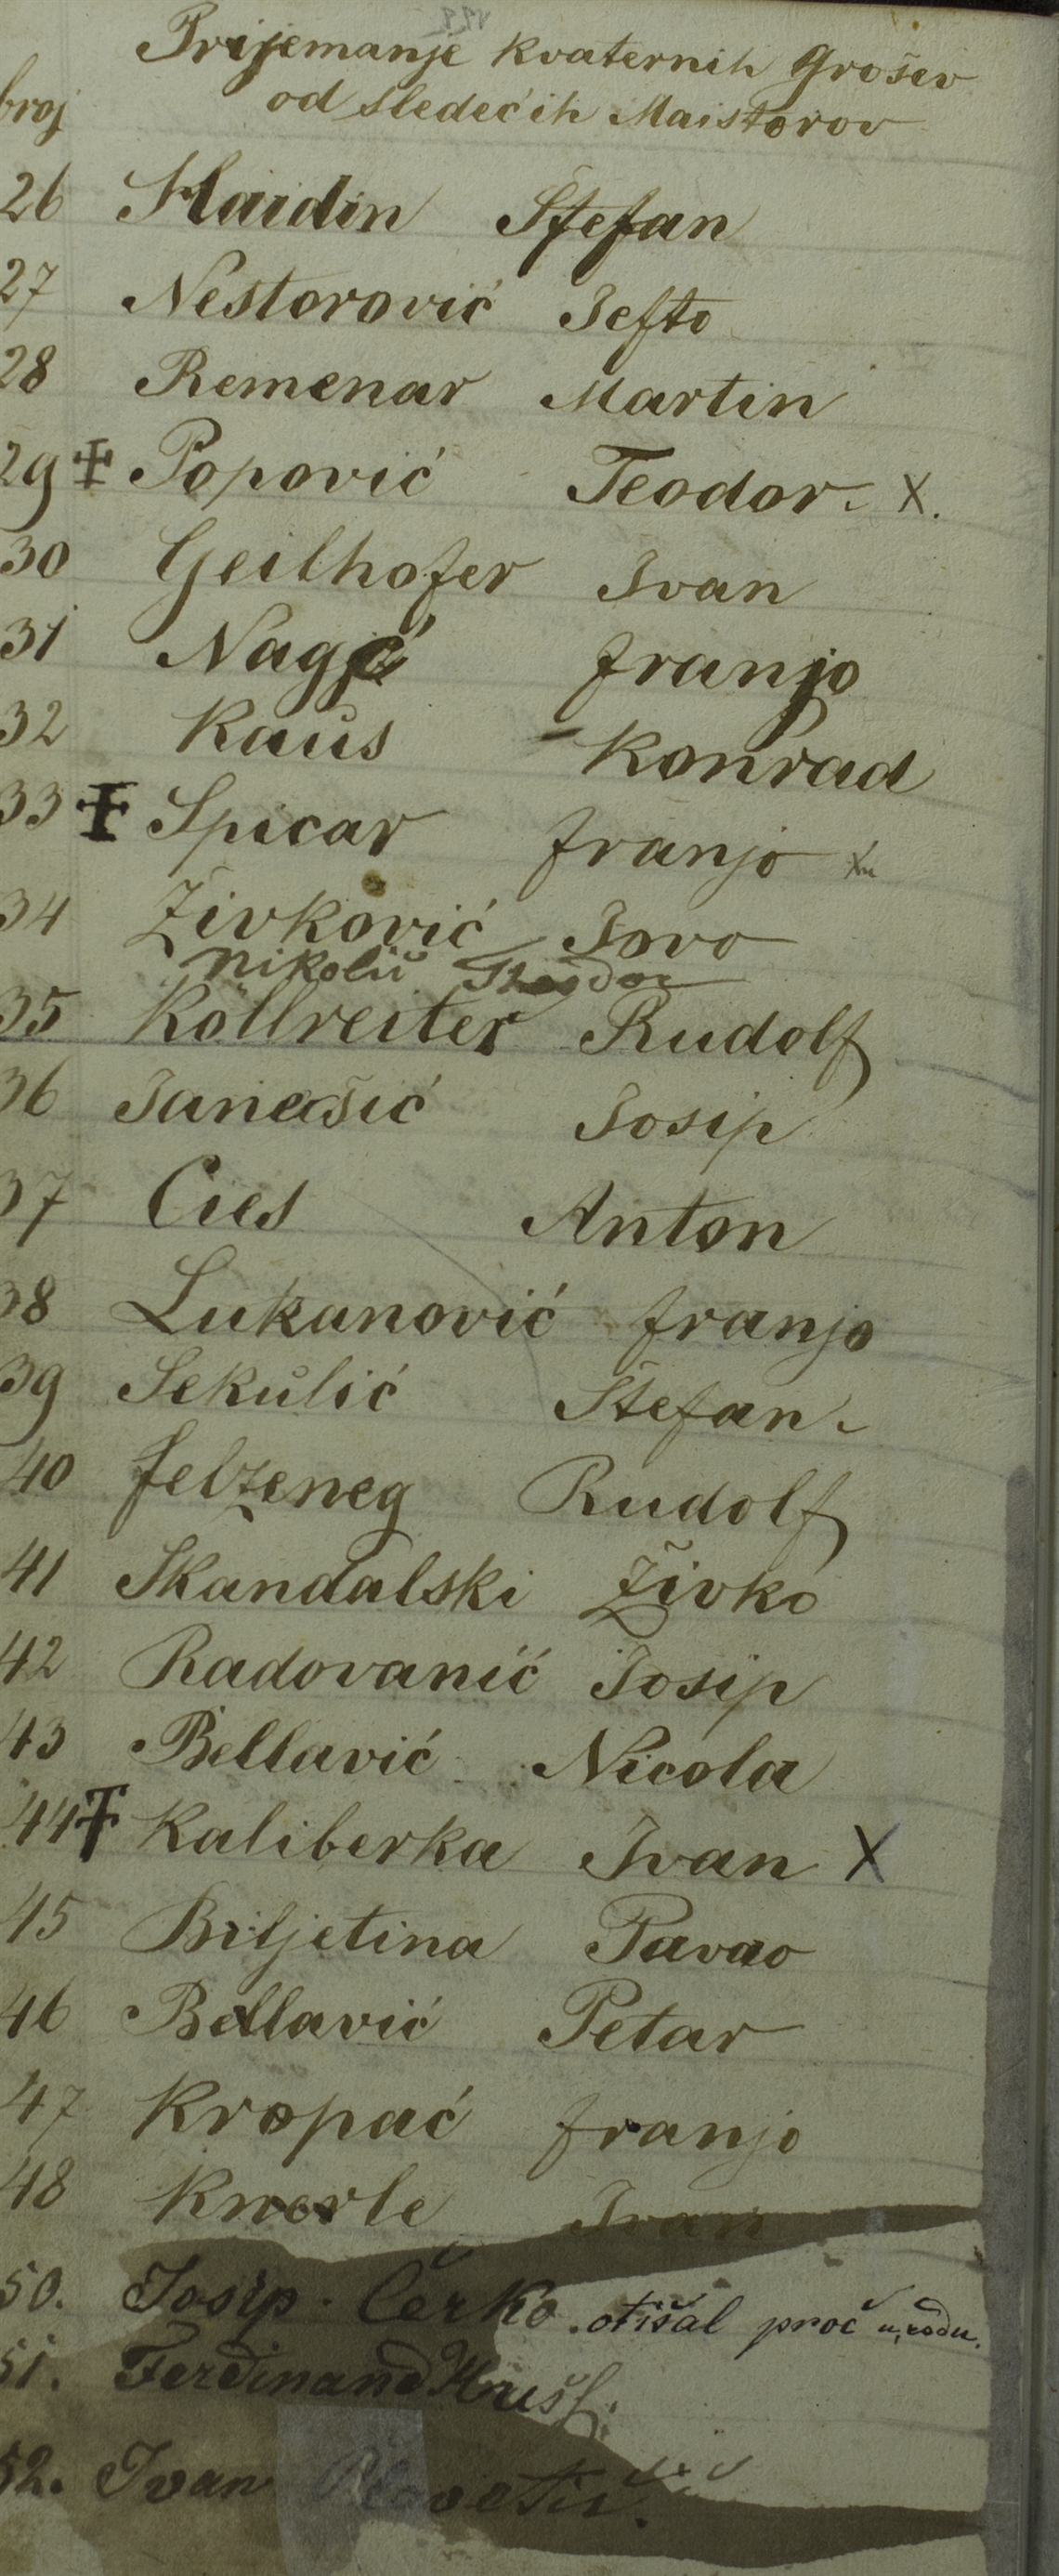 Prijemanje kvaternih Grošev
od sledećih Maistorov
broj
26 Haidin Stefan
27 Nestorović Jefto
28 Remenar Martin
29 ✝ Popović Teodor. X.
30 Geilhofer Ivan
31 Franjo
32 Kaus Konrad
33 ✝ Spicar Franjo
34 Živković Jovo
Nikolić Theodor
35 Kollreiter Rudolf
36 Janešić Josip
37 Cies Anton
38 Lukanović Franjo
39 Sekulić Stefan.
40 Felzeneg Rudolf
41 Skandalski Živko
42 Radovanić Josip
43 Bellavić Nicola
44 ✝ Kaliberka Ivan X
45 Biljetina Pavao
46 Bellavić Petar
47 Kropać Franjo
48 Knerle Ivan
50. Josip. Čerko otišal proč
51. Ferdinand
52. Ivan